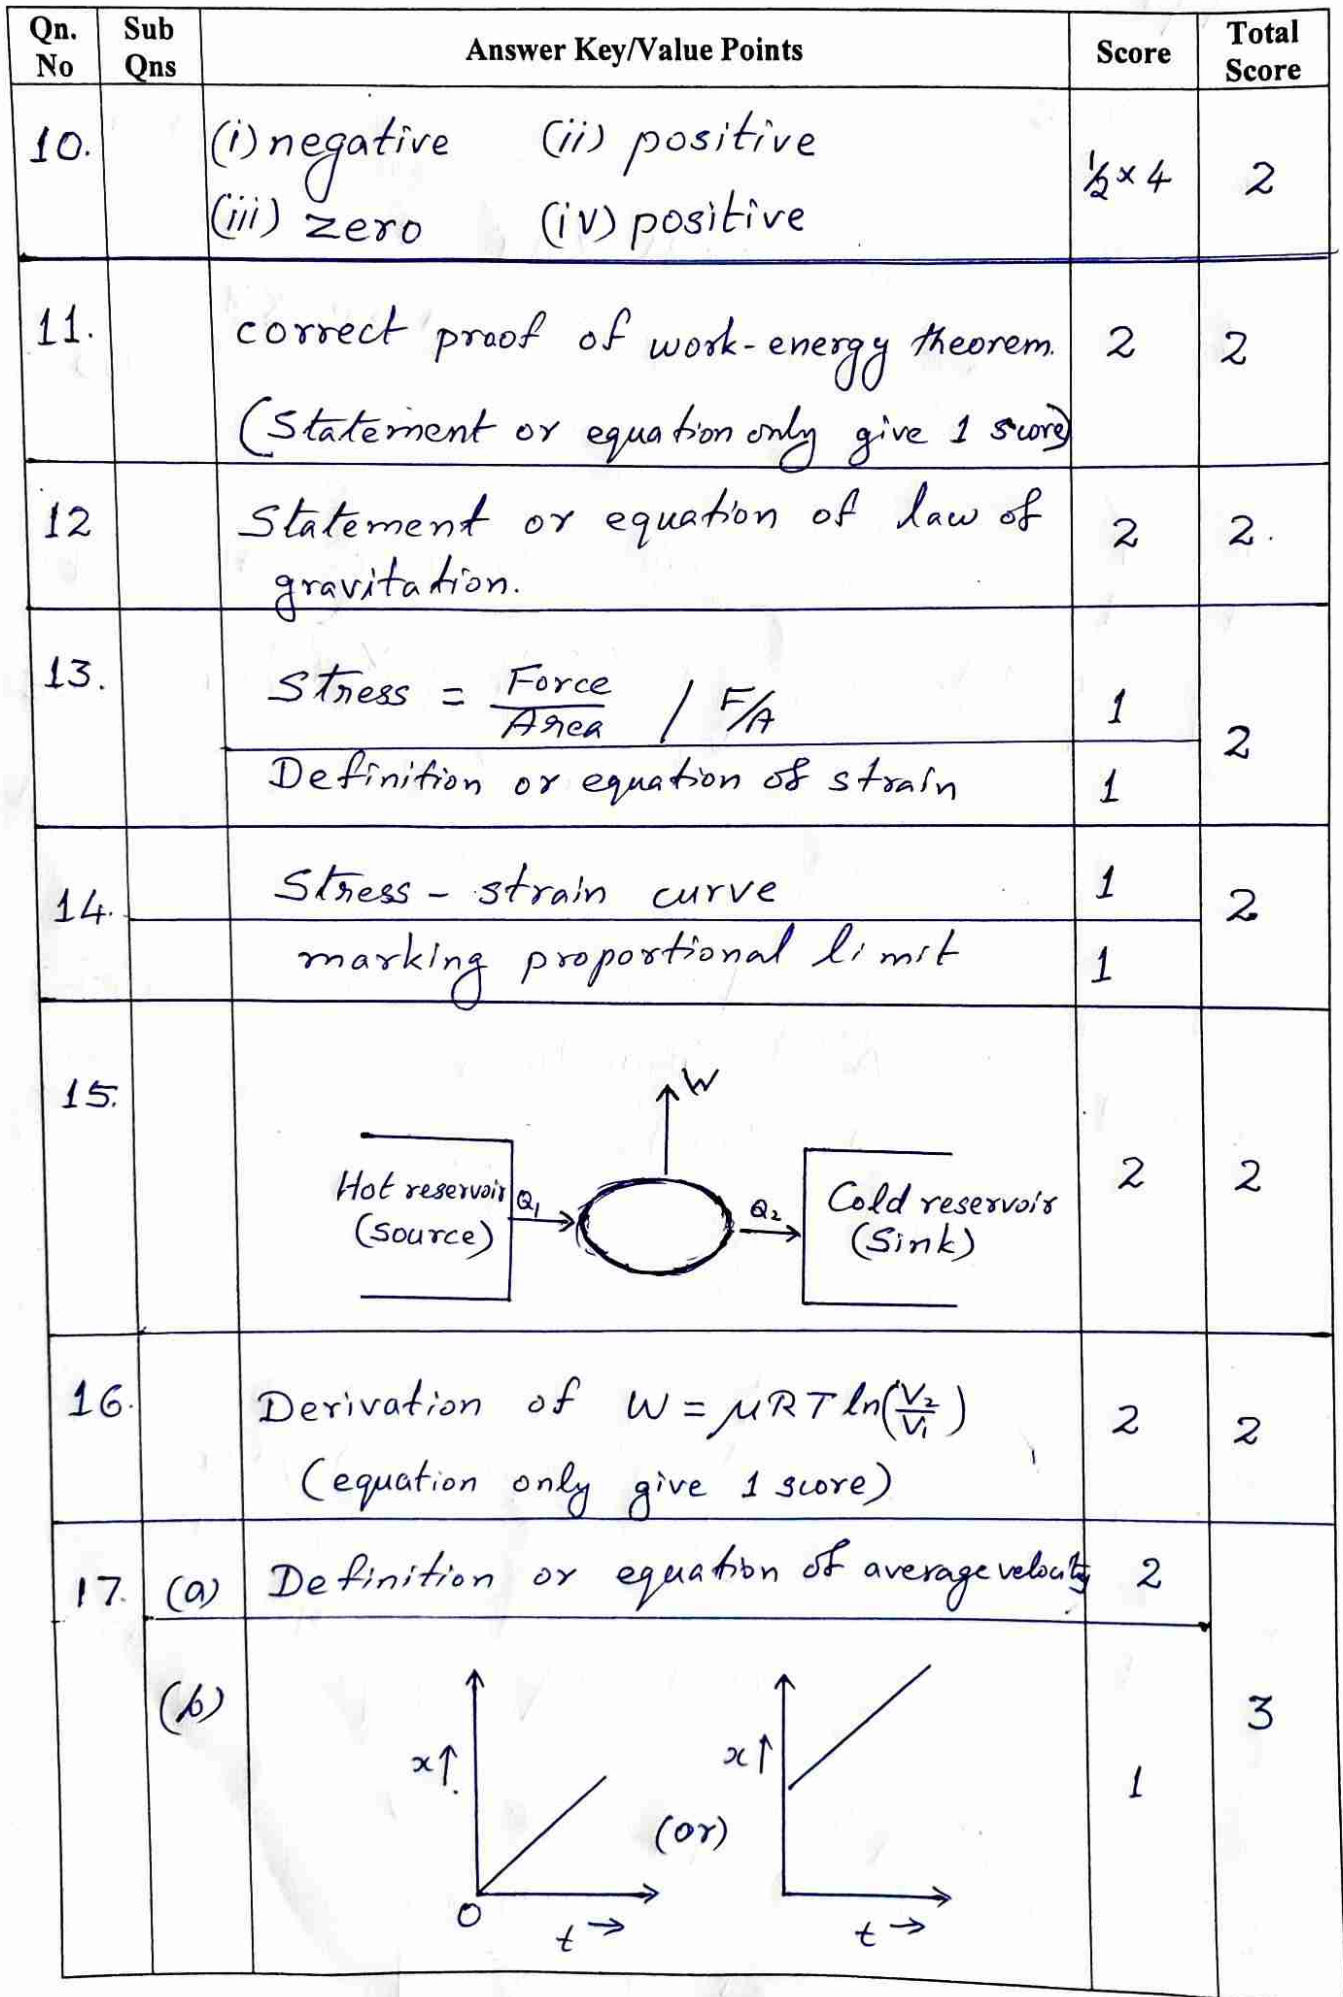 Qn. No Sub Qns Answer Key/Value Points Score Total Score
10. (i) negative (ii) positive ½ × 4 2
(iii) zero (iv) positive
11. correct proof of work-energy theorem. 2 2
(Statement or equation only give 1 score)
12 Statement or equation of law of 2 2.
gravitation.
13. Stress = Force/Area / F/A 1 2
Definition or equation of strain 1
14. Stress - strain curve 1 2
marking proportional limit 1
15. W 2 2
Hot reservoir (Source) Q₁ Q₂ Cold reservoir (Sink)
16. Derivation of W = μRT ln(V₂/V₁) 2 2
(equation only give 1 score)
17. (a) Definition or equation of average velocity 2 3
(b) x↑ x↑ 1
(or)
O t→ t→